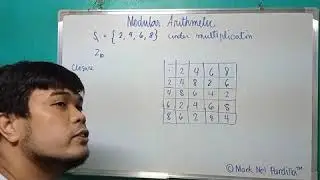 Modular Arithmetic
S = { 2, 4, 6, 8 } under multiplication
Z₁₀
Closure
· 2 4 6 8
2 4 8 2 6
4 8 6 4 2
6 2 4 6 8
8 6 2 8 4
© Mark Nel Pardilla™